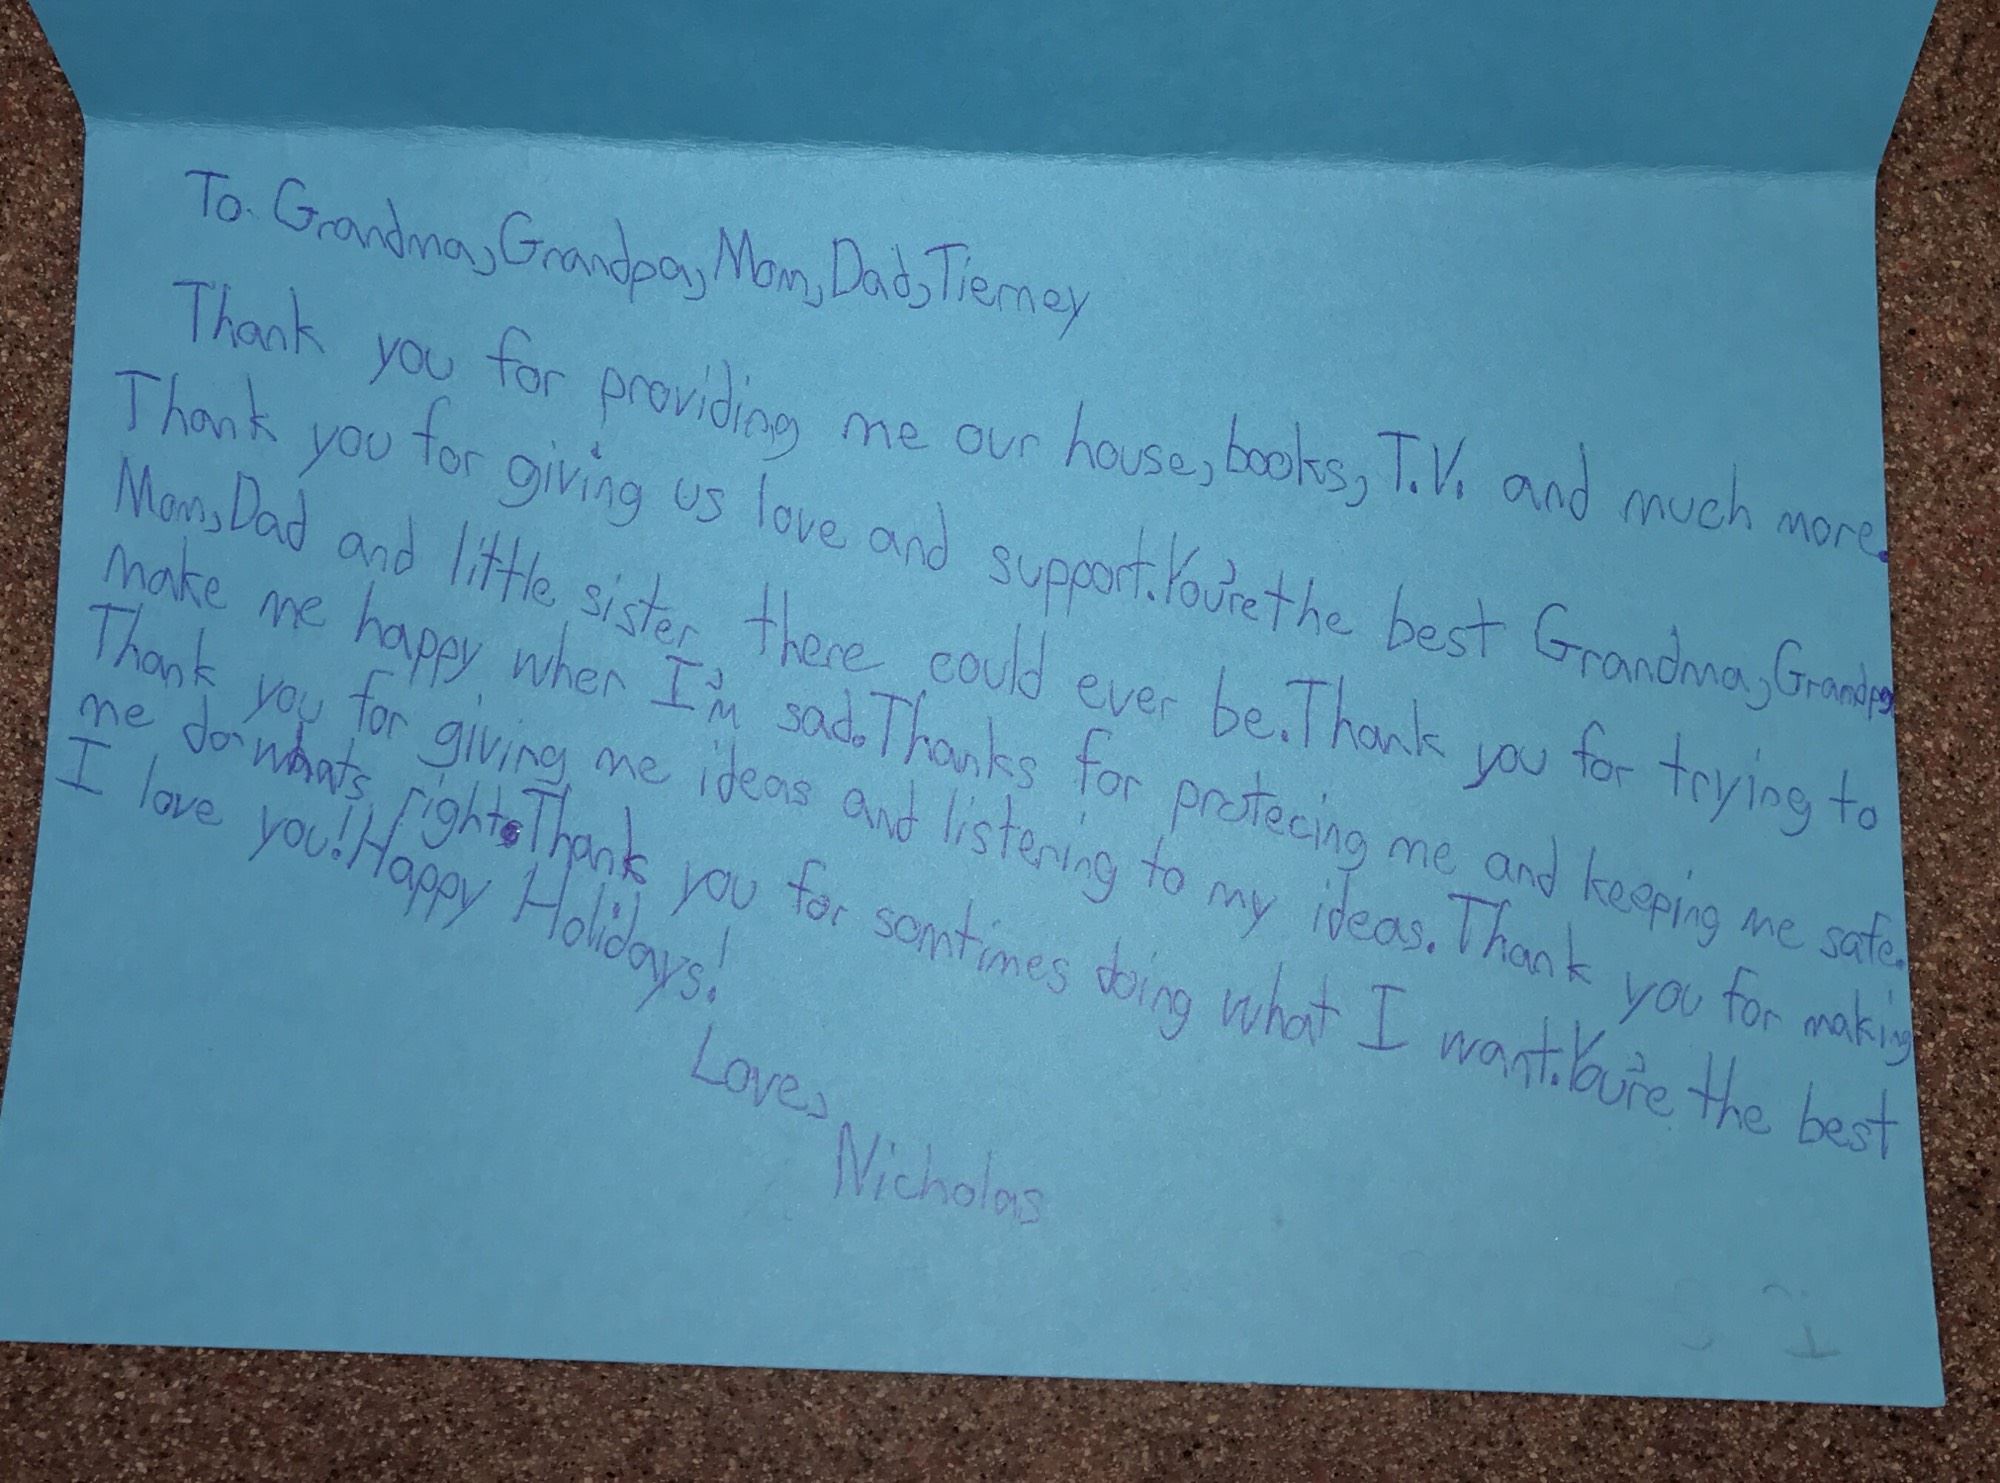 To. Grandma, Grandpa, Mom, Dad, Tierney
Thank you for providing me our house, books, T.V. and much more.
Thank you for giving us love and support. You're the best Grandma, Grandpa
Mom, Dad and little sister there could ever be. Thank you for trying to
make me happy when I'm sad. Thanks for protecing me and keeping me safe.
Thank you for giving me ideas and listening to my ideas. Thank you for making
me do whats right. Thank you for somtimes doing what I want. You're the best
I love you! Happy Holidays!
Love,
Nicholas